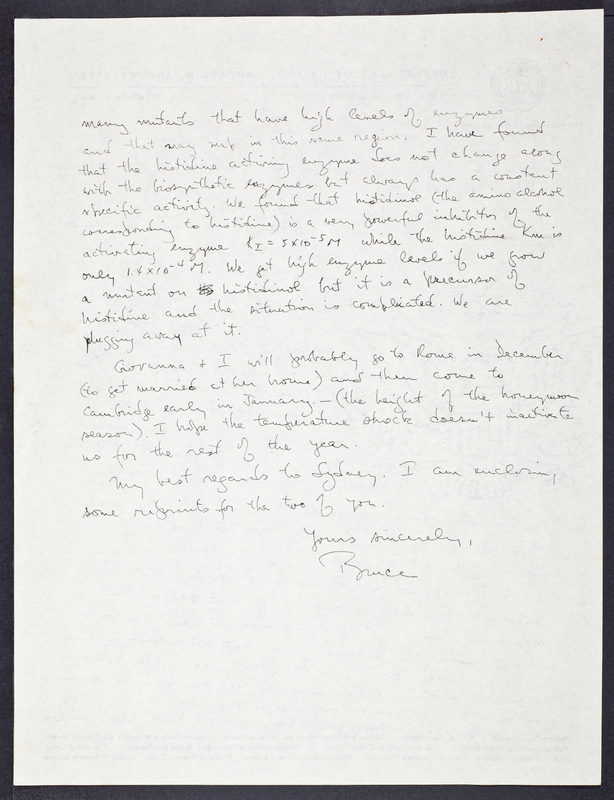 many mutants that have high levels of enzymes
and that may map in this same region. I have found
that the histidine activing enzyme does not change along
with the biosynthetic enzymes but always has a constant
specific activity. We found that histidinol (the amino alcohol
corresponding to histidine) is a very powerful inhibitor of the
activating enzyme KI = 5x10-5 M while the histidine Km is
only 1.4x10-4 M. We get high enzyme levels if we grow
a mutant on histidinol but it is a precursor of
histidine and the situation is complicated. We are
plugging away at it.
Giovanna & I will probably go to Rome in December
(to get married at her home) and then come to
Cambridge early in January. — (the height of the honeymoon
season). I hope the temperature shock doesn't inactivate
us for the rest of the year.
My best regards to Sydney. I am enclosing
some reprints for the two of you.
Yours sincerely,
Bruce